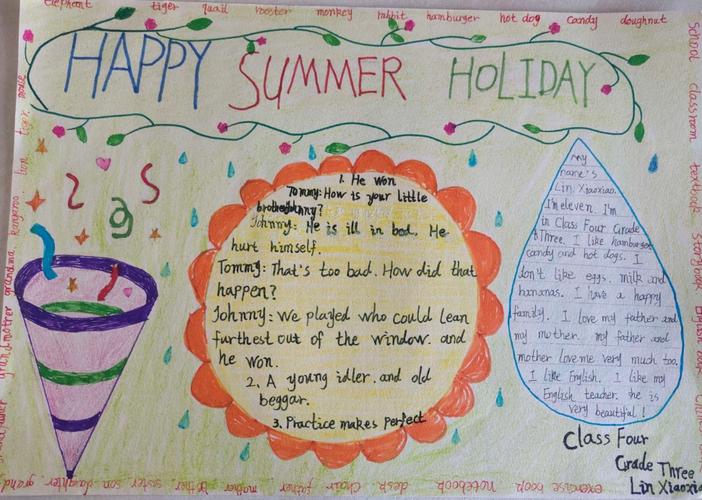 elephant tiger quail rooster monkey rabbit hamburger hot dog candy doughnut
HAPPY SUMMER HOLIDAY
1. He won
Tommy: How is your little
Johnny: He is ill in bed. He
hurt himself.
Tommy: That's too bad. How did that
happen?
Johnny: We played who could lean
furthest out of the window. and
he won.
2. A young idler. and old
beggar.
3. Practice makes perfect
My
name's
Lin Xiaoxiao.
I'm eleven. I'm
in Class Four Grade
Three. I like hamburger
candy and hot dogs. I
don't like eggs. milk and
bananas. I have a happy
family. I love my father and
my mother. my father and
mother love me very much too.
I like English. I like my
English teacher. she is
very beautiful!
Class Four
Grade Three
Lin Xiaoxia
School classroom textbook Storybook English book
grandmother grandma. kangaroo. lion. tiger. mouse
exercise book notebook desk chair father mother brother sister son daughter. grand